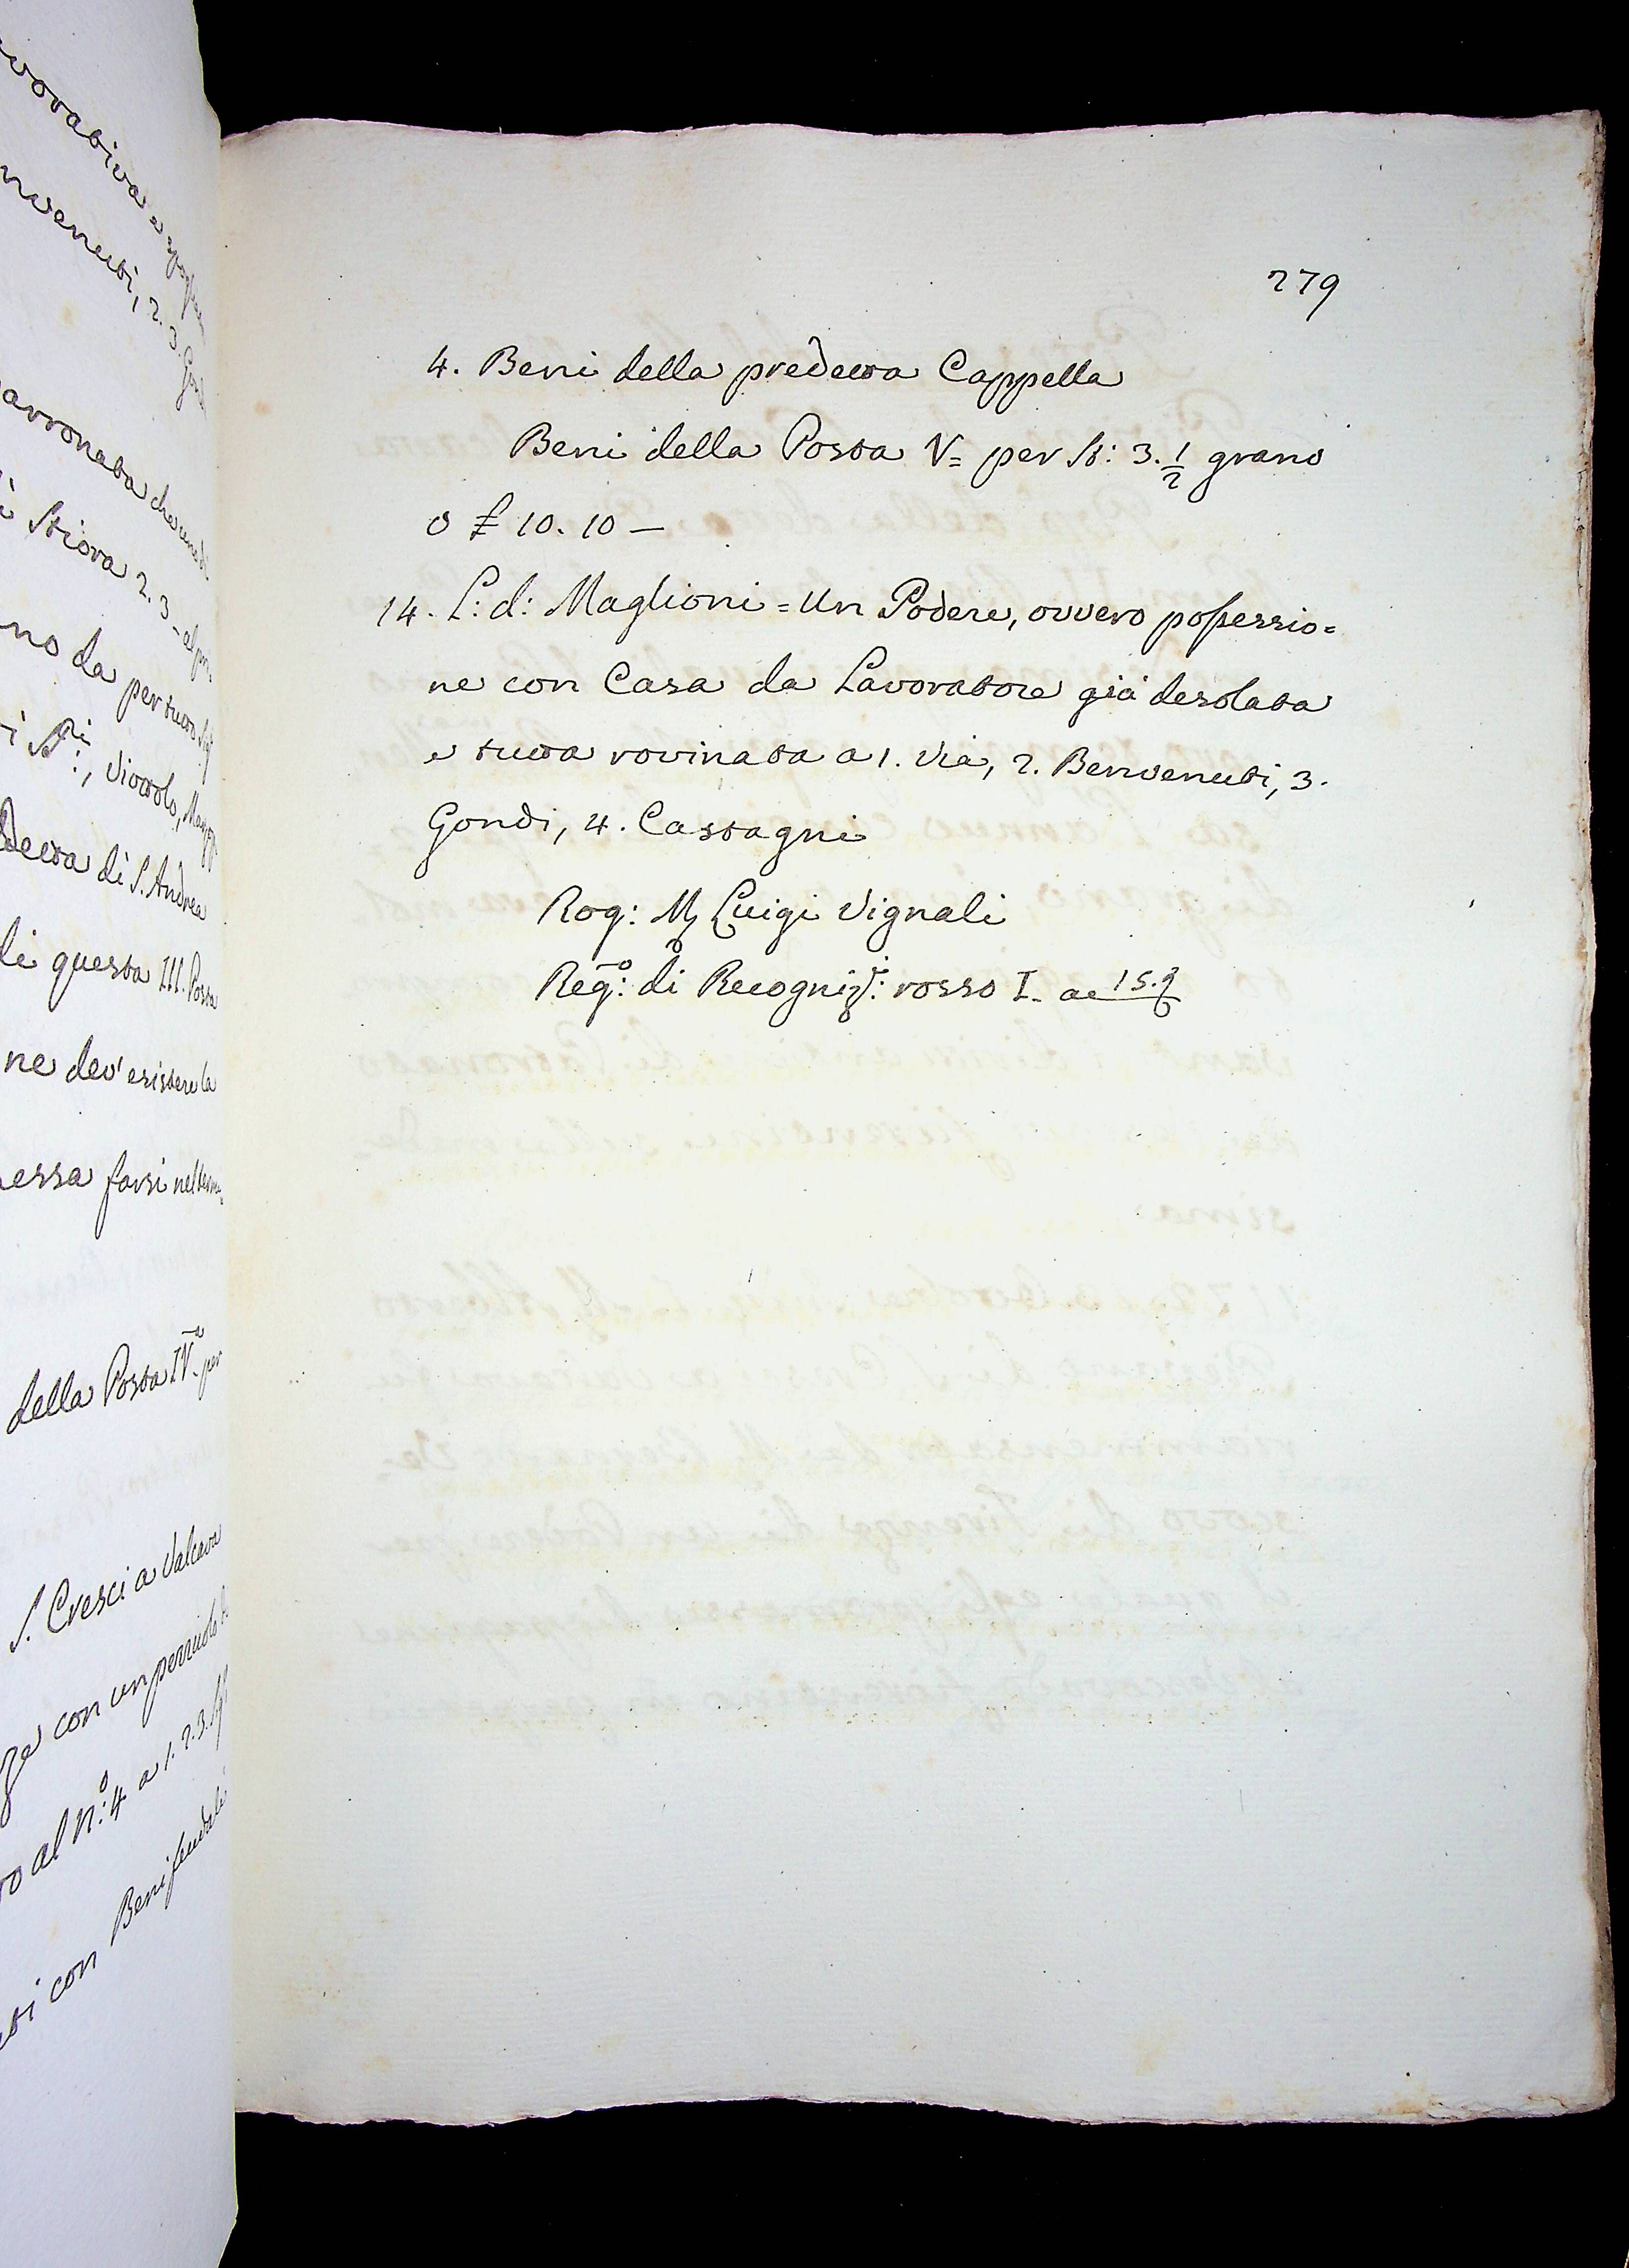 vorativa e
nvenuti, 2. 3. Gondi
arronata che
i Stiora 2. 3
no da per tutto
i Sti:, Viottolo,
detta di S. Andrea
di questa III. Posta
ne dev' esistere la
essa farsi nel
della Posta IV.a per
S. Cresci a Valcava
con un pezzuolo
ro al n.o: 4 a 1. 2. 3.
ti con Beni feudali
279
4. Beni della predetta Cappella
Beni della Posta V= per St: 3. 1/2 grano
o £ 10. 10 —
14. L: d: Maglioni = Un Podere, ovvero possessio=
ne con Casa da Lavoratore già desolata
e tutta rovinata a 1. Via, 2. Benvenuti, 3.
Gondi, 4. Castagni
Rog: M Luigi Vignali
Reg.o: di Recogniz.i: rosso I. a c 152